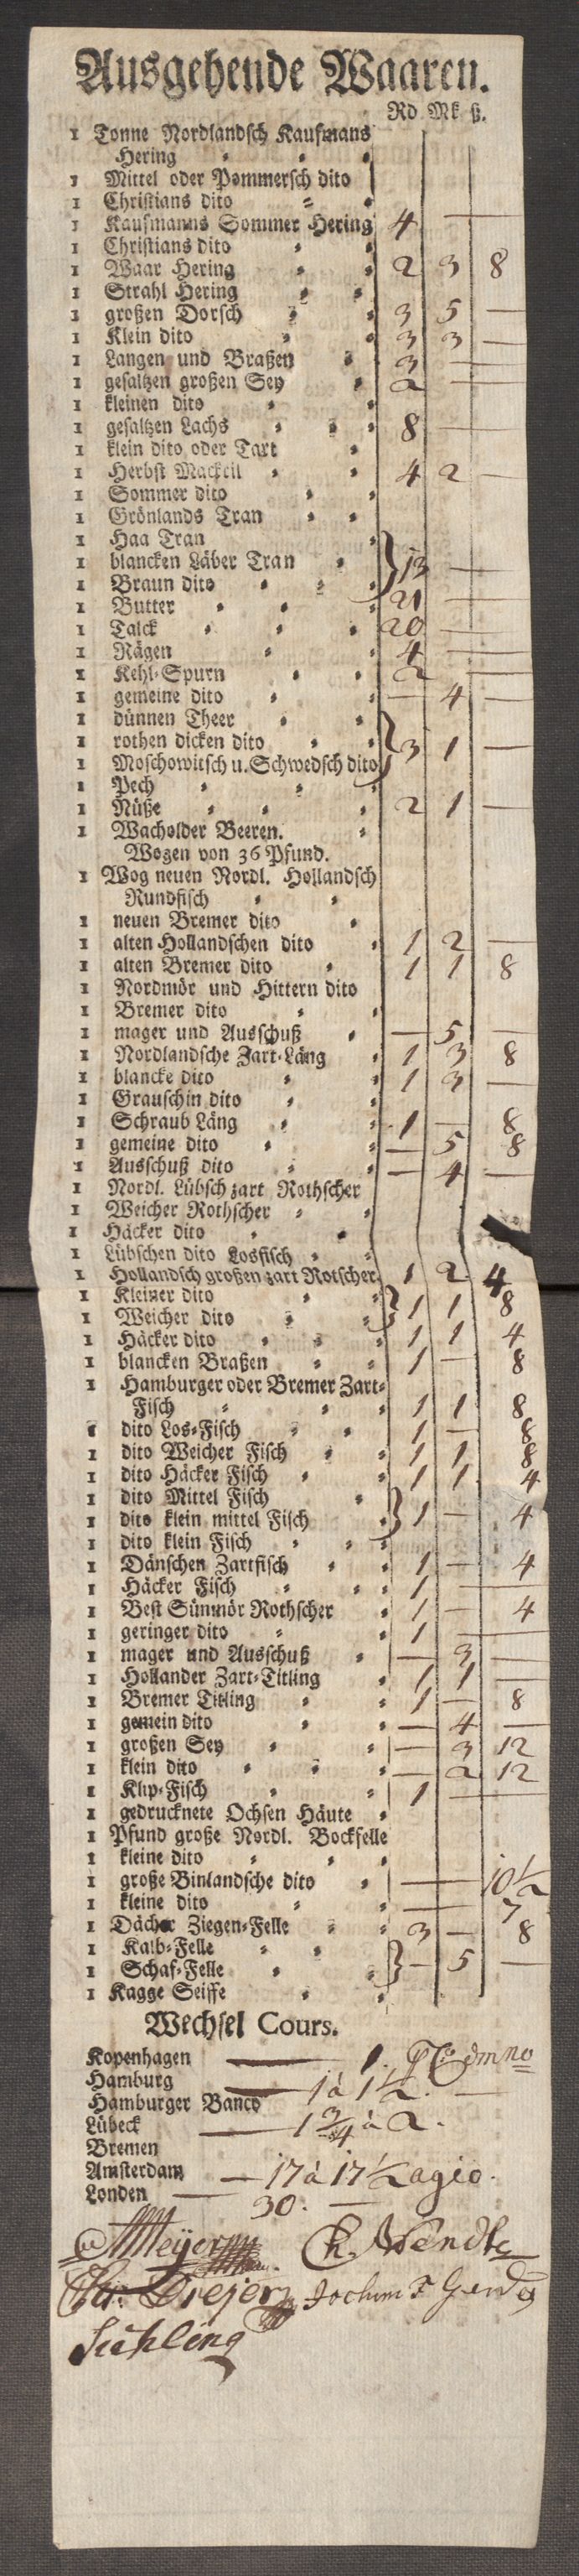 Ausgehende Waaren.
Rd Mk ß.
1 Tonne Nordlandsch Kaufmans
Hering
1 Mittel oder Pommersch dito
1 Christians dito
1 Kaufmanns Sommer Hering 4 —
1 Christians dito
1 Waar Hering 2 3 8
1 Strahl Hering
1 großen Dorsch 3 5 —
1 Klein dito 3 3 —
1 Langen und Braßen 3 —
1 gesaltzen großen Sey 2 —
1 kleinen dito
1 gesaltzen Lachs 8 —
1 klein dito oder Tart
1 Herbst Mackril 4 2 —
1 Sommer dito
1 Grönlands Tran
1 Haa Tran
1 blancken Läber Tran } 13 —
1 Braun dito
1 Butter 21 —
1 Talck 20 —
1 Rägen 4 —
1 Kehl-Spurn 2 —
1 gemeine dito — 4 —
1 dünnen Theer
1 rothen dicken dito } 3 1 —
1 Moschowitsch u. Schwedsch dito
1 Pech
1 Nüße 2 1 —
1 Wacholder Beeren.
Wogen von 36 Pfund.
1 Wog neuen Nordl. Hollandsch
Rundfisch
1 neuen Bremer dito
1 alten Hollandschen dito 1 2 —
1 alten Bremer dito 1 1 8
1 Nordmör und Hittern dito
1 Bremer dito
1 mager und Ausschuß — 5 —
1 Nordlandsche Zart-Läng 1 3 8
1 blancke dito 1 3 —
1 Grauschin dito
1 Schraub Läng 1 — 8
1 gemeine dito — 5 8
1 Ausschuß dito — 4 —
1 Nordl. Lübsch zart Rothscher
1 Weicher Rothscher
1 Häcker dito
1 Lübschen dito Losfisch
1 Hollandsch großen zart Rotscher 1 2 4
1 Kleiner dito } 1 1 8
1 Weicher dito
1 Häcker dito 1 1 4
1 blancken Braßen 1 — 8
1 Hamburger oder Bremer Zart-
Fisch 1 1 8
1 dito Los-Fisch 1 — 8
1 dito Weicher Fisch 1 1 8
1 dito Häcker Fisch 1 1 4
1 dito Mittel Fisch
1 dito klein mittel Fisch } 1 — 4
1 dito klein Fisch
1 Dänschen Zartfisch 1 — 4
1 Häcker Fisch 1 —
1 Best Sünmör Rothscher 1 — 4
1 geringer dito 1 —
1 mager und Ausschuß — 3 —
1 Hollander Zart-Titling 1 1 —
1 Bremer Titling 1 — 8
1 gemein dito — 4 —
1 großen Sey — 3 12
1 klein dito — 2 12
1 Klip-Fisch 1 —
1 gedrucknete Ochsen Häute
1 Pfund große Nordl. Bockfelle
1 kleine dito
1 große Binlandsche dito — 10 1/2
1 kleine dito — 7
1 Dächer Ziegen-Felle 3 — 8
1 Kalb-Felle } — 5 —
1 Schaf-Felle
1 Kagge Seiffe
Wechsel Cours.
Kopenhagen — 1.
Hamburg — 1 à 1 1/2. —
Hamburger Banco
Lübeck — 1 3/4 à 2.
Bremen
Amsterdam — 17 à 17 1/2 agio.
Londen — 30. —
Meyer
Dreyer Jochim F Gerdes
Sühling